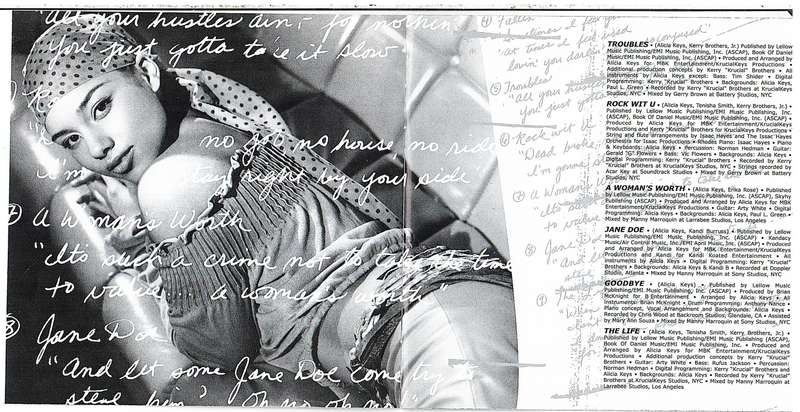 "all your hustles ain't for nothin'
You just gotta take it slow"
no no house, no ride
right by your side
7) A Womans Worth
"Its such a crime not to take the time
to value a woman's worth"
8) Jane Doe
"And let some Jane Doe come
steal him? Oh no oh no"
4) Fallen
Sometimes I feel good
"At times I feel used
lovin' you darlin'
confused"
5) Troubles
"All your hustles
You just gotta
6) Rock wit U
"Dead broke,
I'm gonna
7) A Woman's
"Its such
to value
8) Jane
"And let
9) The
TROUBLES • (Alicia Keys, Kerry Brothers, Jr.) Published by Lellow
Music Publishing/EMI Music Publishing, Inc. (ASCAP), Book Of Daniel
Music/EMI Music Publishing, Inc. (ASCAP) • Produced and Arranged by
Alicia Keys for MBK Entertainment/KrucialKeys Productions •
Additional production concepts by Kerry "Krucial" Brothers • All
instruments by Alicia Keys except: Bass: Tim Shider • Digital
Programming: Kerry "Krucial" Brothers • Backgrounds: Alicia Keys,
Paul L. Green • Recorded by Kerry "Krucial" Brothers at KrucialKeys
Studios, NYC • Mixed by Gerry Brown at Battery Studios, NYC
ROCK WIT U • (Alicia Keys, Tenisha Smith, Kerry Brothers, Jr.) •
Published by Lellow Music Publishing/EMI Music Publishing, Inc.
(ASCAP), Book Of Daniel Music/EMI Music Publishing, Inc. (ASCAP) •
Produced by Alicia Keys for MBK Entertainment/KrucialKeys
Productions and Kerry "Krucial" Brothers for KrucialKeys Productions •
String and flute arrangements by Isaac Hayes and The Isaac Hayes
Orchestra for Isaac Productions • Rhodes Piano: Isaac Hayes • Piano
& Keyboards: Alicia Keys • Percussion: Norman Hedman • Guitar:
Gerald "G" Flowers • Bass: Vic Flowers • Backgrounds: Alicia Keys •
Digital Programming: Kerry "Krucial" Brothers • Recorded by Kerry
"Krucial" Brothers at KrucialKeys Studios, NYC • Strings recorded by
Acar Key at Soundtrack Studios • Mixed by Gerry Brown at Battery
Studios, NYC
A WOMAN'S WORTH • (Alicia Keys, Erika Rose) • Published
by Lellow Music Publishing/EMI Music Publishing, Inc. (ASCAP), Skyhy
Publishing (ASCAP) • Produced and Arranged by Alicia Keys for MBK
Entertainment/KrucialKeys Productions • Guitar: Arty White • Digital
Programming: Alicia Keys • Backgrounds: Alicia Keys, Paul L. Green •
Mixed by Manny Marroquin at Larrabee Studios, Los Angeles
JANE DOE • (Alicia Keys, Kandi Burruss) • Published by Lellow
Music Publishing/EMI Music Publishing, Inc. (ASCAP) • Kandacy
Music/Air Control Music, Inc./EMI April Music, Inc. (ASCAP) • Produced
and Arranged by Alicia Keys for MBK Entertainment/KrucialKeys
Productions and Kandi for Kandi Koated Entertainment • All
instruments by Alicia Keys • Digital Programming: Kerry "Krucial"
Brothers • Backgrounds: Alicia Keys & Kandi B • Recorded at Doppler
Studio, Atlanta • Mixed by Manny Marroquin at Sony Studios, NYC
GOODBYE • (Alicia Keys) • Published by Lellow Music
Publishing/EMI Music Publishing, Inc. (ASCAP) • Produced by Brian
McKnight for B Entertainment • Arranged by Alicia Keys • All
Instruments: Brian McKnight • Drum Programming: Anthony Nance •
Piano concept, Vocal Arrangement and Backgrounds: Alicia Keys •
Recorded by Chris Wood at Backroom Studios, Glendale, CA • Assisted
by Mary Ann Souza • Mixed by Manny Marroquin at Sony Studios, NYC
THE LIFE • (Alicia Keys, Tenisha Smith, Kerry Brothers, Jr.) •
Published by Lellow Music Publishing/EMI Music Publishing, Inc. (ASCAP),
Book Of Daniel Music/EMI Music Publishing, Inc. (ASCAP) • Produced and
Arranged by Alicia Keys for MBK Entertainment/KrucialKeys
Productions • Additional production concepts by Kerry "Krucial"
Brothers • Guitar: Arty White • Bass: Rufus Jackson • Percussion:
Norman Hedman • Digital Programming: Kerry "Krucial" Brothers and
Alicia Keys • Backgrounds: Alicia Keys • Recorded by Kerry "Krucial"
Brothers at KrucialKeys Studios, NYC • Mixed by Manny Marroquin at
Larrabee Studios, Los Angeles